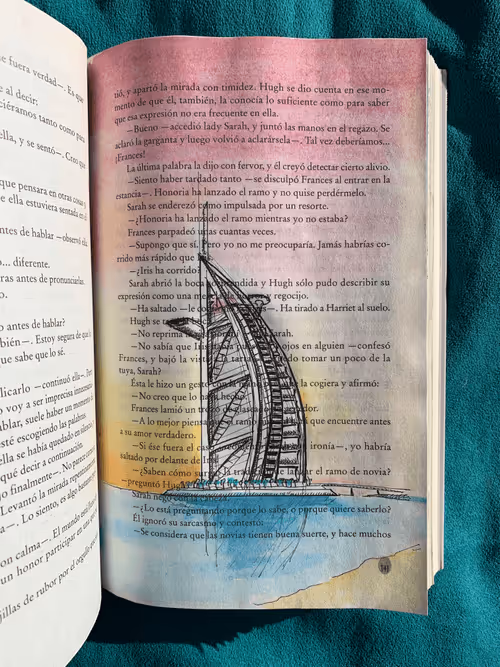 e fuera verdad—. Es que
e al decir:
ciéramos tanto como para
ella, y se sentó—. Creo que
que pensara en otras cosas y
e ella estuviera sentada en el
antes de hablar —observó ella,
o... diferente.
ras antes de pronunciarlas.
o.
o antes de hablar?
mbién—. Estoy segura de que
que sabe que lo sé.
licarlo —continuó ella—. Pero
o voy a ser imprecisa innecesaria
ablar, suele haber un momento
esté escogiendo las palabras.
ella se había quedado en silencio
qué decir a continuación.
jo finalmente—. No pareces
Levantó la mirada repentina
a—. Lo siento, es algo
on calma—. El mundo
un honor participar en una
jillas de rubor por el orgullo
tió, y apartó la mirada con timidez. Hugh se dio cuenta en ese mo-
mento de que él, también, la conocía lo suficiente como para saber
que esa expresión no era frecuente en ella.
—Bueno —accedió lady Sarah, y juntó las manos en el regazo. Se
aclaró la garganta y luego volvió a aclarársela—. Tal vez deberíamos...
¡Frances!
La última palabra la dijo con fervor, y él creyó detectar cierto alivio.
—Siento haber tardado tanto —se disculpó Frances al entrar en la
estancia—. Honoria ha lanzado el ramo y no quise perdérmelo.
Sarah se enderezó como impulsada por un resorte.
—¿Honoria ha lanzado el ramo mientras yo no estaba?
Frances parpadeó unas cuantas veces.
—Supongo que sí. Pero yo no me preocuparía. Jamás habrías co-
rrido más rápido que
—¿Iris ha corrido?
Sarah abrió la boca y Hugh sólo pudo describir su
expresión como una mezcla de regocijo.
—Ha saltado —le —. Ha tirado a Harriet al suelo.
Hugh se
—No Sarah.
—No sabía que Iris ojos en alguien —confesó
Frances, y bajó la vista tarta. tomar un poco de la
tuya, Sarah?
Ésta le hizo un gesto con la mano la cogiera y afirmó:
—No creo que lo haya hecho.
Frances lamió un trozo de
—A lo mejor piensa que el ramo que encuentre antes
a su amor verdadero.
—Si ése fuera el caso ironía—, yo habría
saltado por delante de
—¿Saben cómo la el ramo de novia?
—preguntó Hugh
Sarah negó con la cabeza.
—¿Lo está preguntando porque lo sabe, o porque quiere saberlo?
Él ignoró su sarcasmo y contestó:
—Se considera que las novias tienen buena suerte, y hace muchos
141